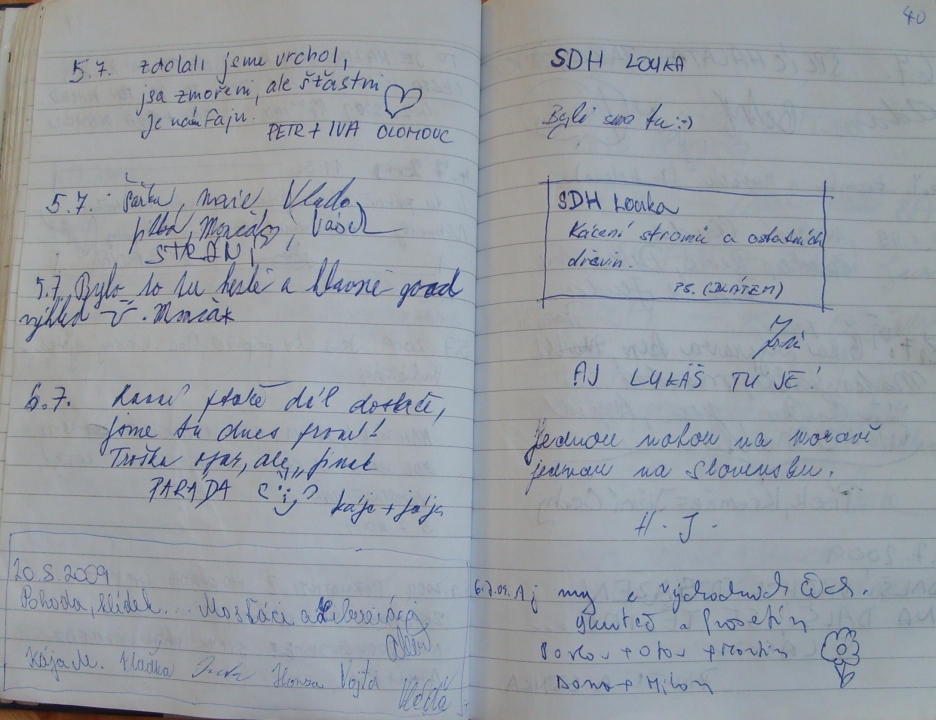 5.7. zdolali jsme vrchol,
jsa zmořeni, ale šťastni
Je nám fajn.
PETR + IVA OLOMOUC
5.7. Šárka, Vlado
STRÁNÍ
5.7. Bylo to tu hezké a hlavně good
výhled
6.7. Ranní ptáče dál doskáče,
jsme tu dnes první!
Troška opar, ale jinak
PARÁDA
kája + jája
20.8.2009
Pohoda, klídek... Mosťáci a
Kája M. Hladka Honza Vojta
40
SDH LOUKA
Byli sme tu :-)
SDH Louka
Kácení stromů a ostatních
dřevin.
PS. (ZLATEM)
Jiří
AJ LUKÁŠ TU JE!
Jednou nohou na moravě
jednou na Slovensku.
H. J.
6.7.09. Aj my z východních Čech.
a Prosetín
Pavla + Ota + Martin
Dana + Milan